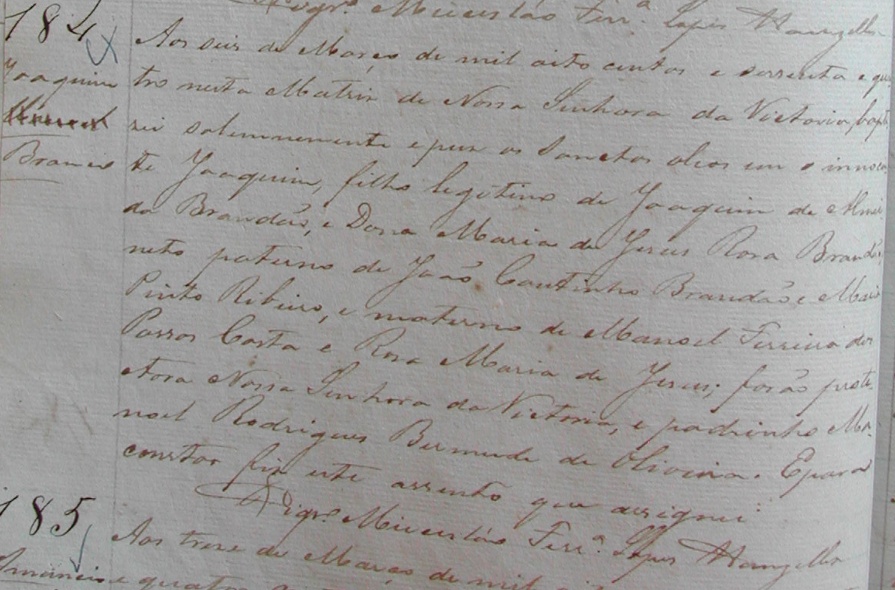 Vigrº Miceslás Ferrª Lopes Wanzeller
184
Joaquim
Branco
Aos seis de Março de mil oito centos e sessenta e qua
tro nesta Matriz de Nossa Senhora da Victoria, bapti
sei solemnemente e puz os Sanctos oleos em o innocen
te Joaquim, filho legitimo de Joaquim de Almei
da Brandão, e Dona Maria de Jesus Rosa Brandão,
neto paterno de João Coutinho Brandão e Maria
Pinto Ribeiro, e materno de Manoel Ferreira dos
Passos Costa e Rosa Maria de Jesus; forão prote
ctora Nossa Senhora da Victoria, e padrinho Ma
noel Rodrigues Bermude de Oliveira. E para
constar fiz este assento que assignei.
Vigrº Miceslás Ferrª Lopes Wanzeller
185
Aos treze de Março de mil
e quatro